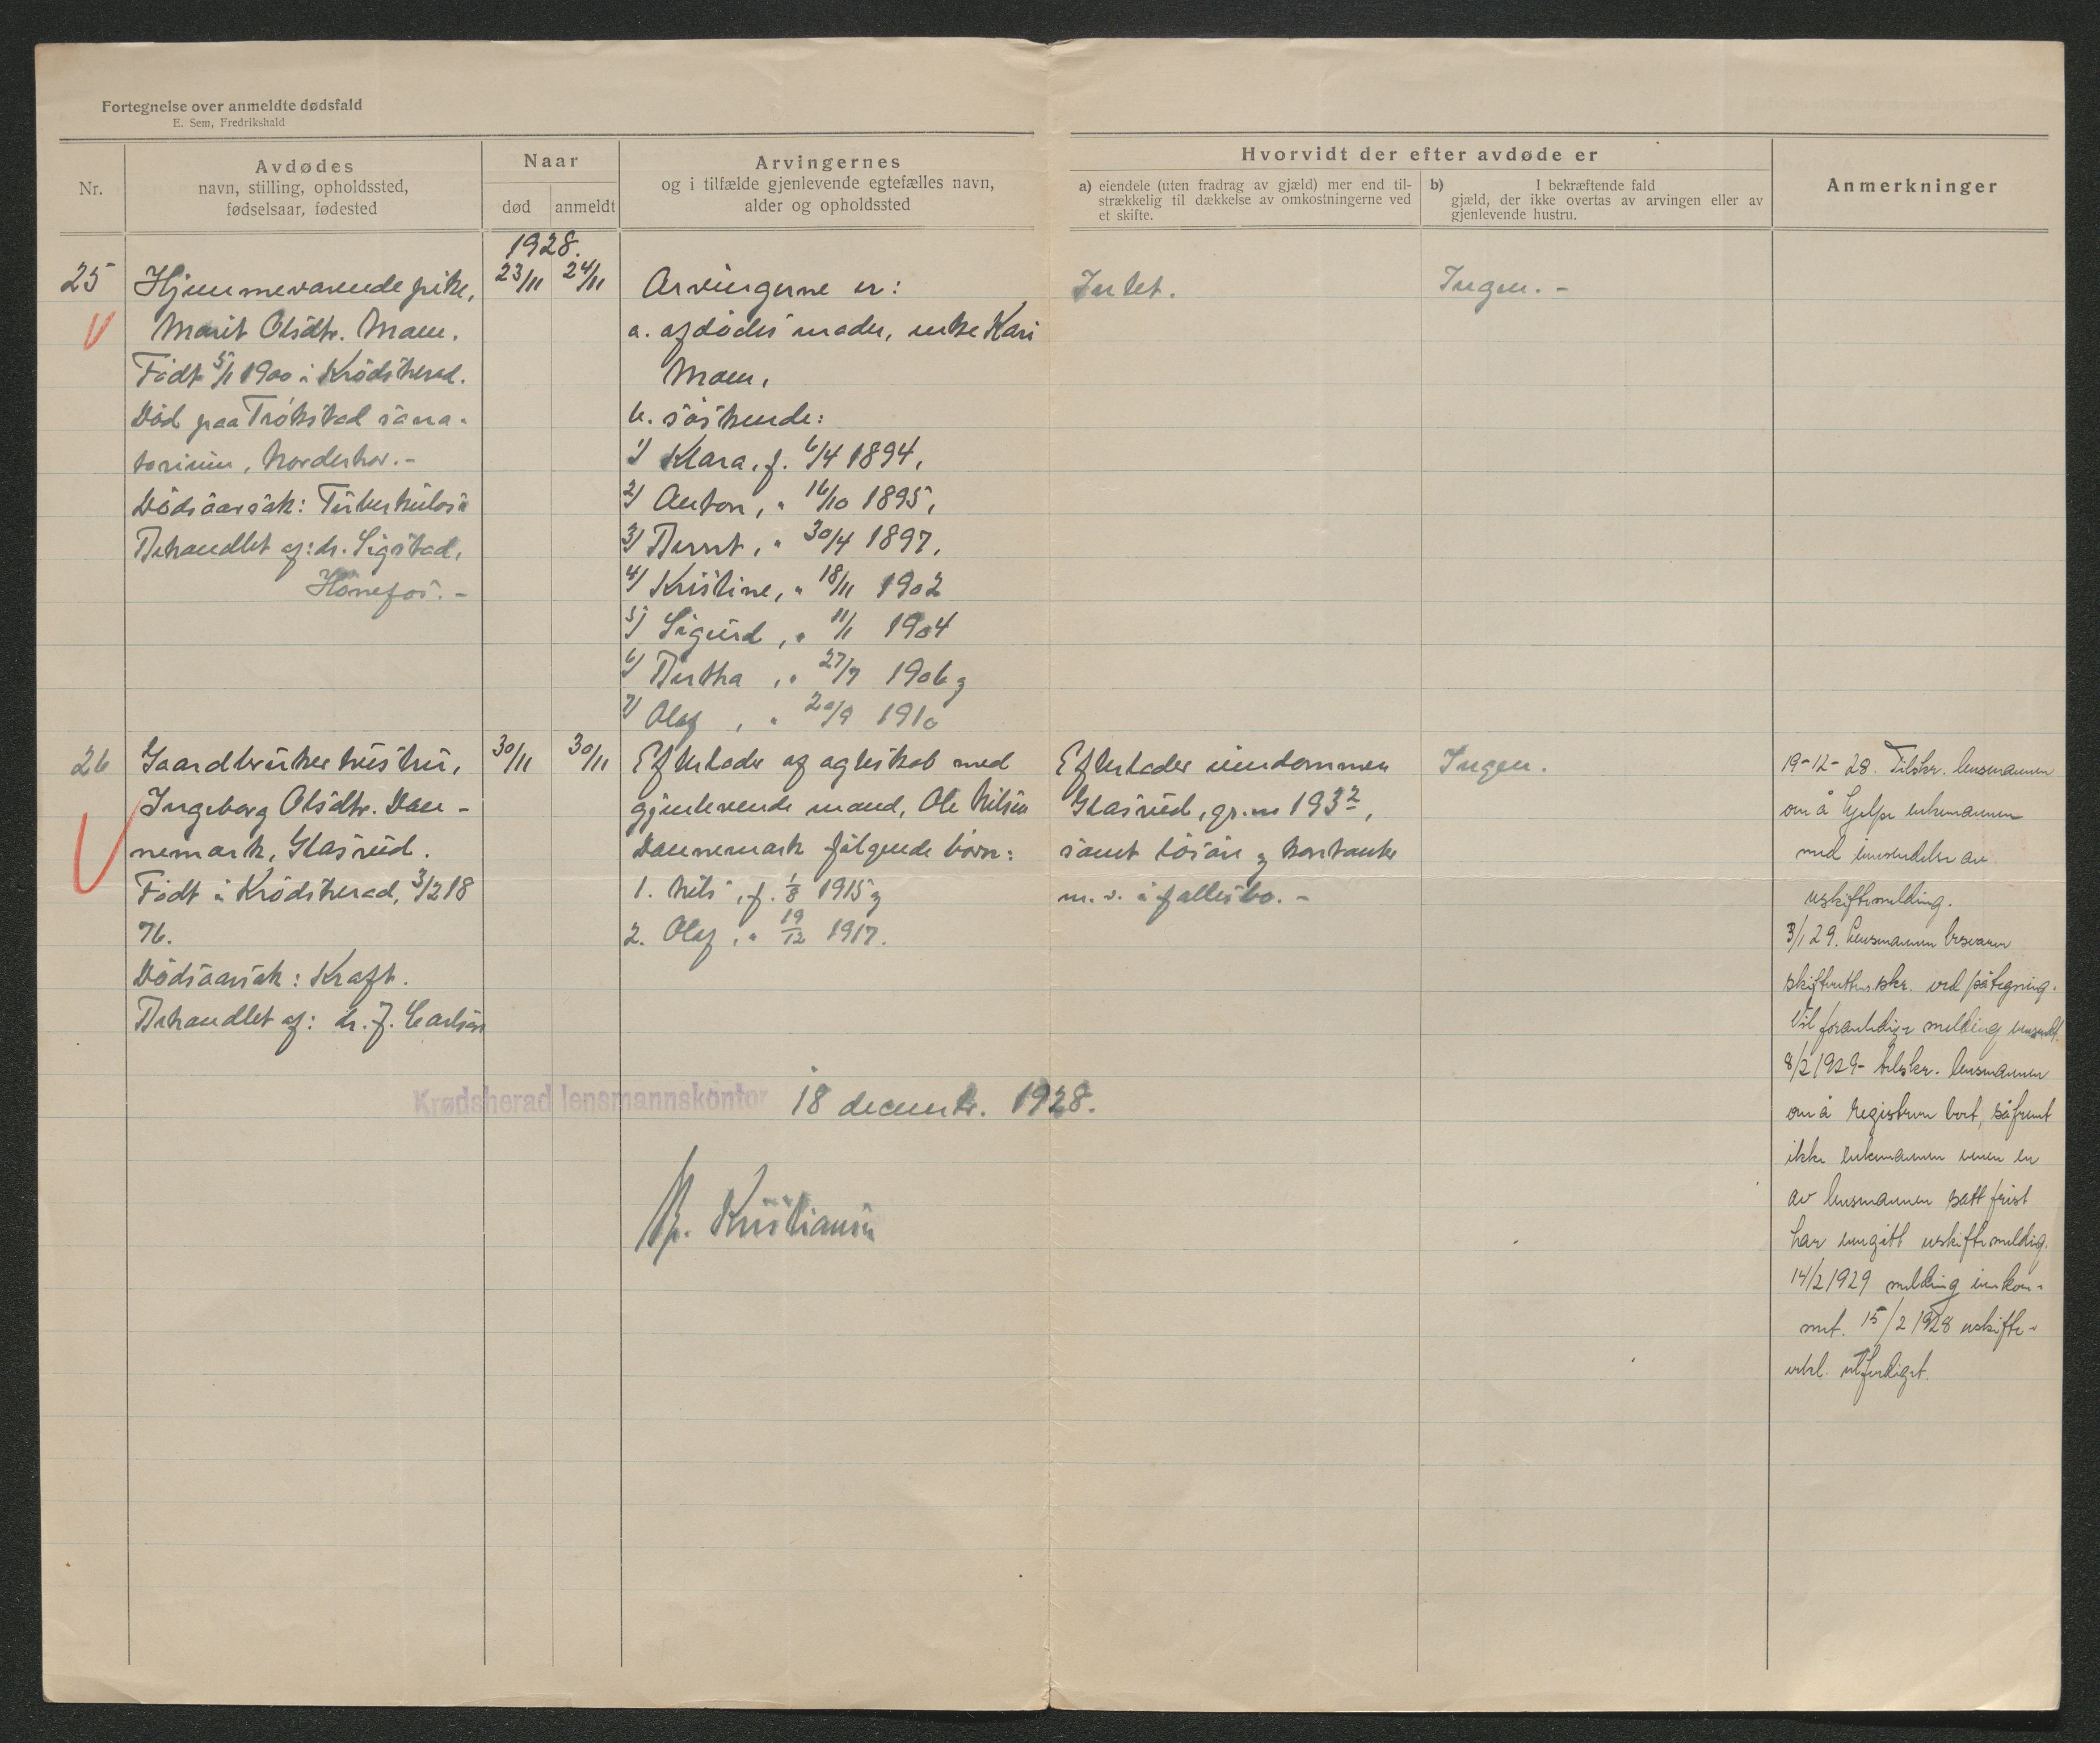 Fortegnelse over anmeldte dødsfald
E. Sem, Fredrikshald
Nr.
Avdødes
navn, stilling, opholdssted,
fødselsaar, fødested
Naar
død
anmeldt
Arvingernes
og i tilfælde gjenlevende egtefælles navn,
alder og opholdssted
Hvorvidt der efter avdøde er
a) eiendele (uten fradrag av gjæld) mer end til-
strækkelig til dækkelse av omkostningerne ved
et skifte.
b) I bekræftende fald
gjæld, der ikke overtas av arvingen eller av
gjenlevende hustru.
Anmerkninger
1928.
25
Hjemmeværende pike,
Marit Olsdtr. Moen.
Født 5/1 1900 i Krødsherad.
Død paa Trøkstad sana-
torium, Norderhov.-
Dødsaarsak: Tuberkulose
Behandlet af: dr. Sigstad,
Hønefos.-
23/11
24/11
Arvingerne er:
a. afdødes moder, enke Kari
Moen,
b. søskende:
1) Klara, f. 6/4 1894,
2) Anton, " 16/10 1895,
3) Bernt, " 30/4 1897,
4) Kristine, " 18/11 1902
5) Sigurd, " 11/1 1904
6) Bertha, " 27/7 1906 og
7) Olaf, " 20/9 1910
Intet.
Ingen.-
26
Gaardbrukerhustru,
Ingeborg Olsdtr. Dan-
nemark, Glasrud.
Født i Krødsherad, 3/2 18
76.
Dødsaarsak: Kræft.
Behandlet af: dr. J. Carlsen
30/11
30/11
Efterlader af ægteskab med
gjenlevende mand, Ole Nilsen
Dannemark følgende børn:
1. Nils, f. 1/8 1915 og
2. Olaf, " 19/12 1917.
Efterlader eiendommen
Glasrud, gr. no 193 2,
samt løsøre og kontanter
m. v. i fællesbo.-
Ingen.
19-12-28. Tilskr. lensmannen
om å hjelpe enkemannen
med innsendelse av
uskiftemelding.
3/1 29. Lensmannen besvarer
skifterettens skr. ved påtegning.
Vil foranledige melding innsendt.
8/2 1929- tilskr. lensmannen
om å registrere boet, såfremt
ikke enkemannen innen en
av lensmannen satt frist
har inngitt uskiftemelding.
14/2 1929 melding innkom-
met. 15/2 1928 uskifte-
utferdiget.
Krødsherad lensmannskontor 18 decembr. 1928.
Kristiansen